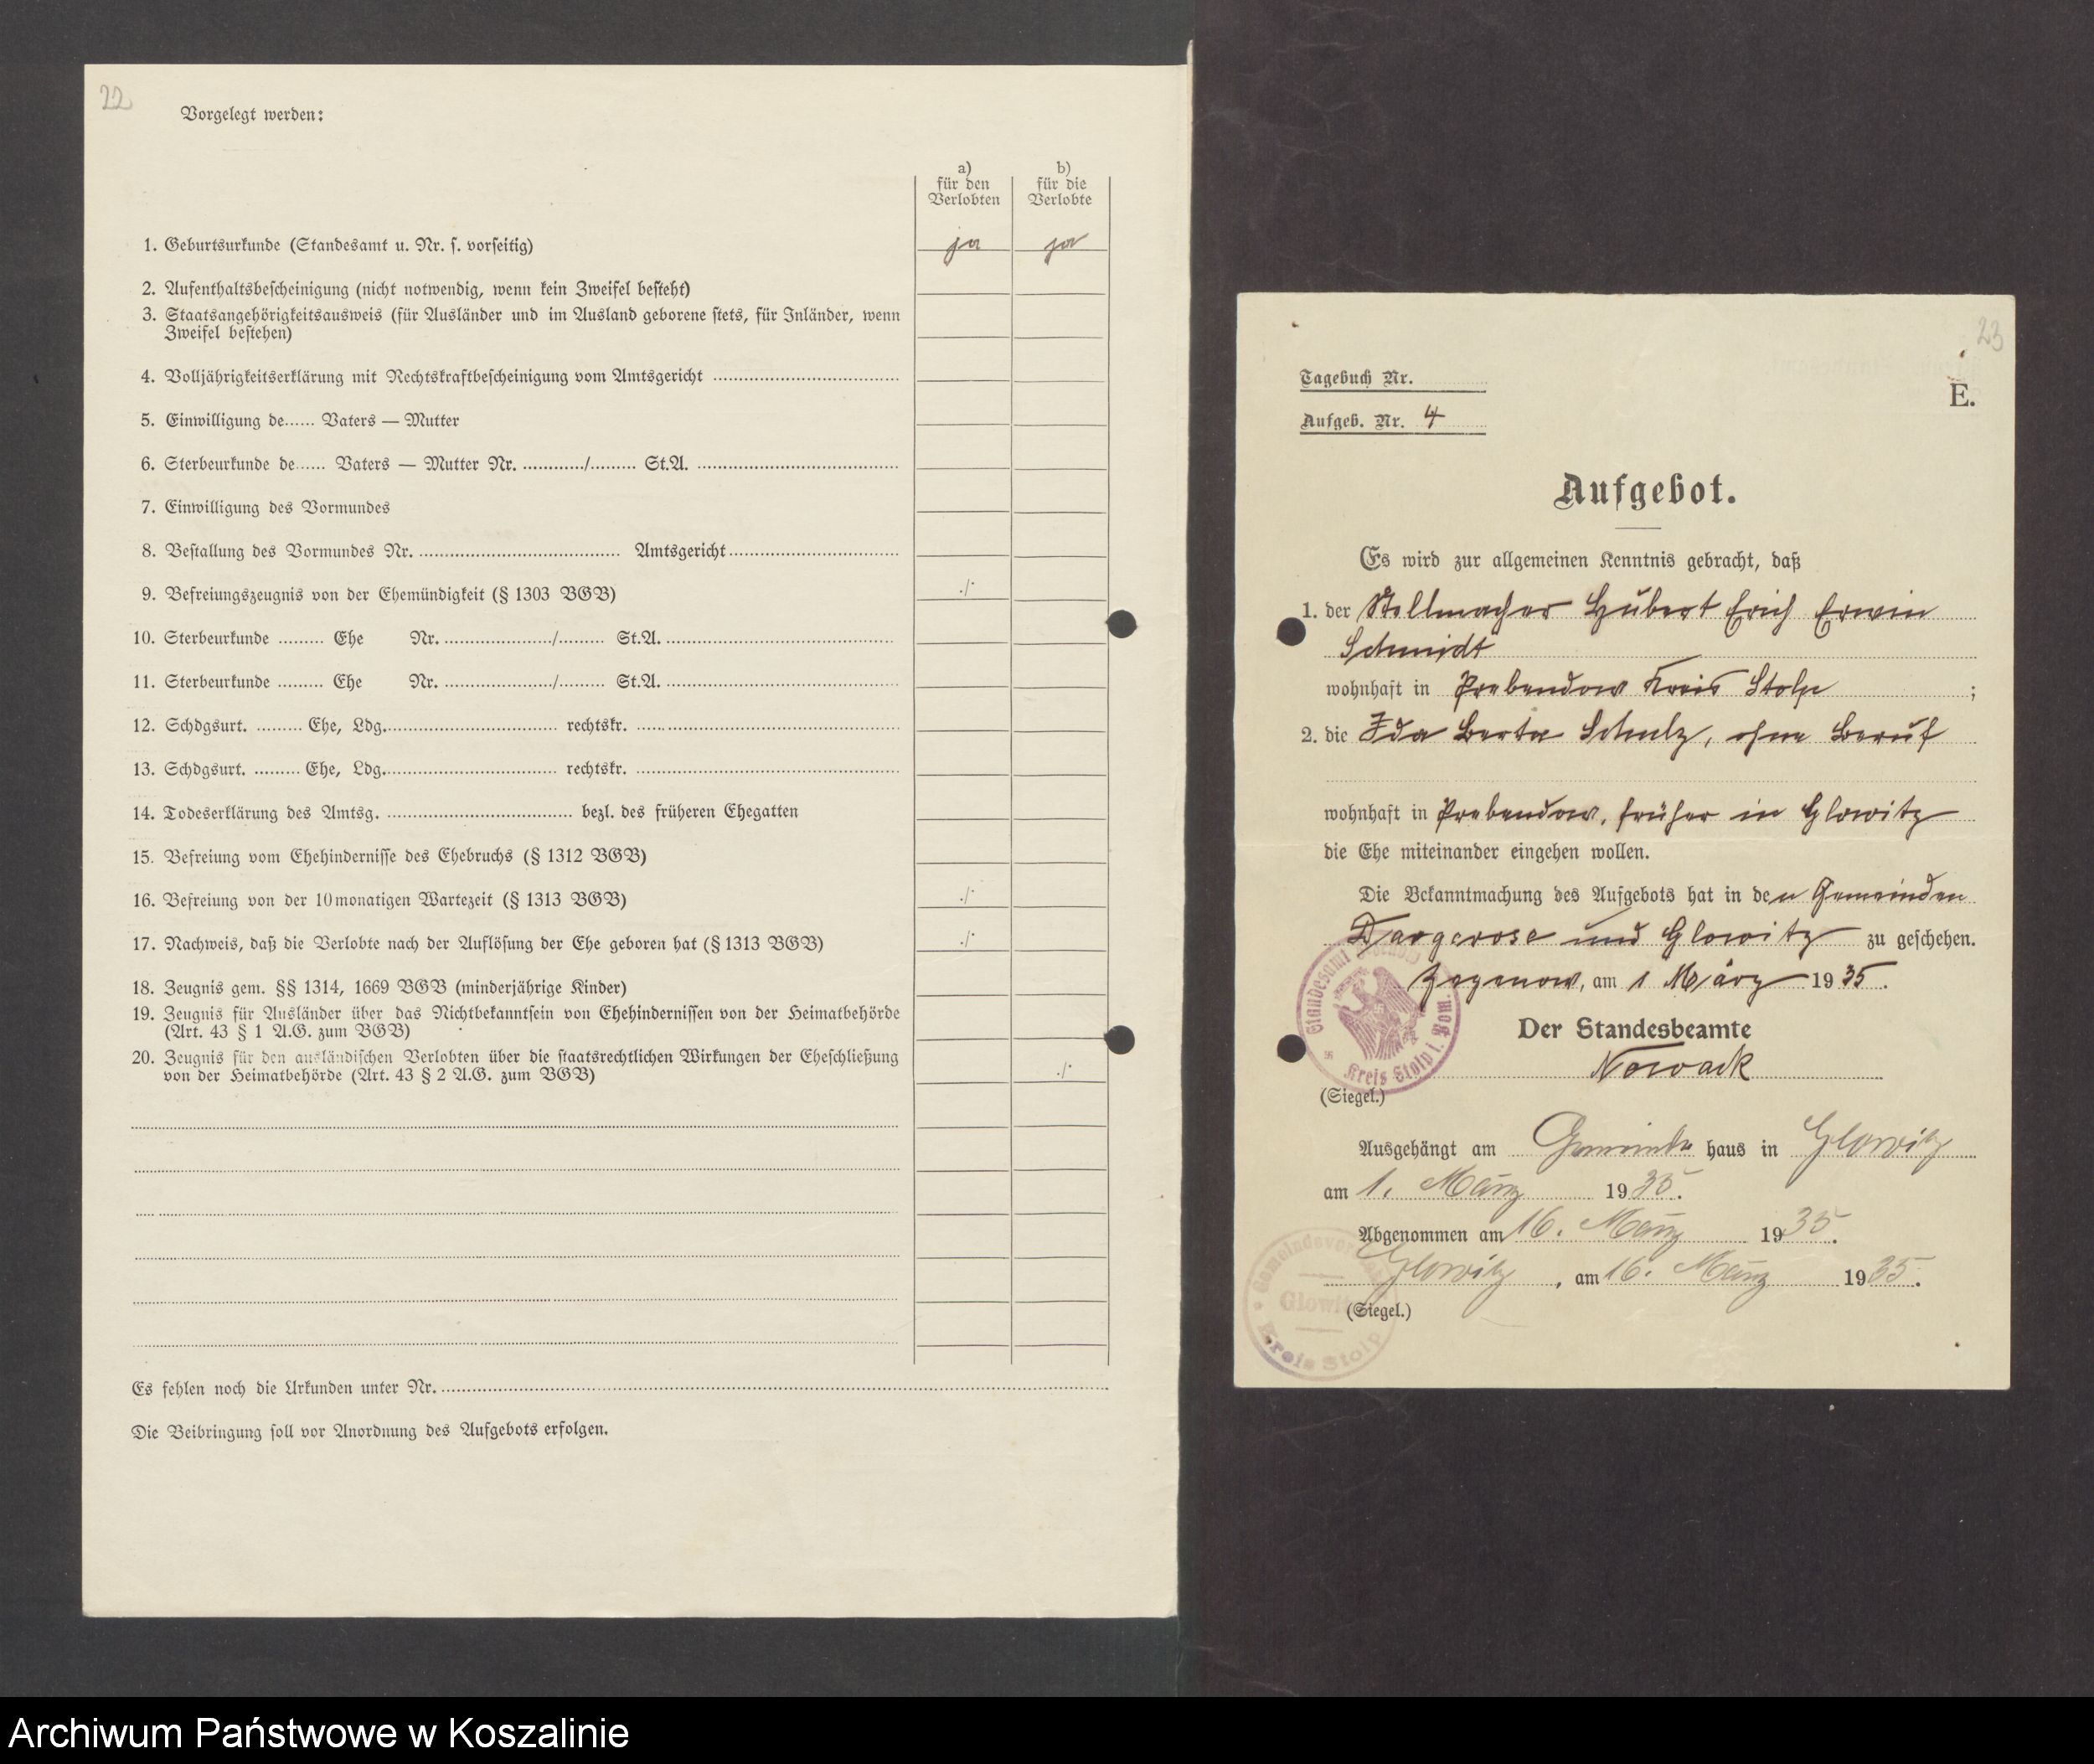 22
Vorgelegt werden:
a)
für den
Verlobten
b)
für die
Verlobte
1. Geburtsurkunde (Standesamt u. Nr. s. vorseitig) ja ja
2. Aufenthaltsbescheinigung (nicht notwendig, wenn kein Zweifel besteht)
3. Staatsangehörigkeitsausweis (für Ausländer und im Ausland geborene stets, für Inländer, wenn
Zweifel bestehen)
4. Volljährigkeitserklärung mit Rechtskraftbescheinigung vom Amtsgericht
5. Einwilligung de...... Vaters — Mutter
6. Sterbeurkunde de...... Vaters — Mutter Nr. ............/......... St.A.
7. Einwilligung des Vormundes
8. Bestallung des Vormundes Nr. .................... Amtsgericht
9. Befreiungszeugnis von der Ehemündigkeit (§ 1303 BGB) ./.
10. Sterbeurkunde ......... Ehe Nr. ...................../......... St.A.
11. Sterbeurkunde ......... Ehe Nr. ...................../......... St.A.
12. Schdgsurt. ......... Ehe, Ldg. .................... rechtskr.
13. Schdgsurt. ......... Ehe, Ldg. .................... rechtskr.
14. Todeserklärung des Amtsg. .................... bezl. des früheren Ehegatten
15. Befreiung vom Ehehindernisse des Ehebruchs (§ 1312 BGB)
16. Befreiung von der 10monatigen Wartezeit (§ 1313 BGB) ./.
17. Nachweis, daß die Verlobte nach der Auflösung der Ehe geboren hat (§ 1313 BGB) ./.
18. Zeugnis gem. §§ 1314, 1669 BGB (minderjährige Kinder)
19. Zeugnis für Ausländer über das Nichtbekanntsein von Ehehindernissen von der Heimatbehörde
(Art. 43 § 1 A.G. zum BGB)
20. Zeugnis für den ausländischen Verlobten über die staatsrechtlichen Wirkungen der Eheschließung
von der Heimatbehörde (Art. 43 § 2 A.G. zum BGB) ./.
Es fehlen noch die Urkunden unter Nr.
Die Beibringung soll vor Anordnung des Aufgebots erfolgen.
23
Tagebuch Nr.
E.
Aufgeb. Nr. 4
Aufgebot.
Es wird zur allgemeinen Kenntnis gebracht, daß
1. der Stellmacher Hubert Erich Erwin
Schmidt
wohnhaft in Prebendow Kreis Stolp ;
2. die Ida Berta Schulz, ohne Beruf
wohnhaft in Prebendow, früher in Glowitz
die Ehe miteinander eingehen wollen.
Die Bekanntmachung des Aufgebots hat in den Gemeinden
Dargerose und Glowitz zu geschehen.
Zezenow, am 1 März 1935.
Standesamt
Kreis Stolp i. Pom.
Der Standesbeamte
Nowack
(Siegel.)
Ausgehängt am Gemeinde haus in Glowitz
am 1. März 1935.
Abgenommen am 16. März 1935.
Glowitz, am 16. März 1935.
(Siegel.)
Glowitz
Kreis Stolp
Archiwum Państwowe w Koszalinie